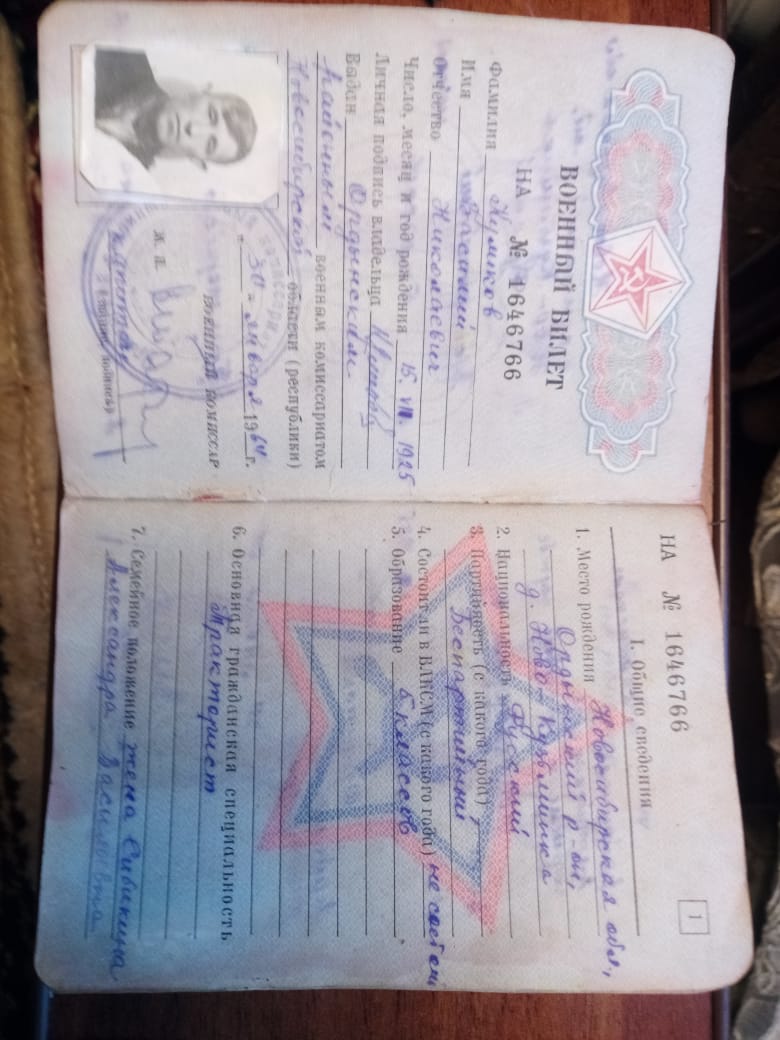 ВОЕННЫЙ БИЛЕТ
НА № 1646766
Фамилия
Имя Василий
Отчество Николаевич
Число, месяц и год рождения 15. VII. 1925
Личная подпись владельца
Выдан Ордынским
Районным военным комиссариатом
Новосибирской области (республики)
„30“ января 1964 г.
ВОЕННЫЙ КОМИССАР
М. П.
НА № 1646766
1
I. Общие сведения
1. Место рождения Новосибирская обл.,
Ордынский р-он,
д. Ново-Кузьминка
2. Национальность Русский
3. Партийность (с какого года)
Беспартийный
4. Состоит ли в ВЛКСМ (с какого года) не состоит
5. Образование 5 классов
6. Основная гражданская специальность
Тракторист
7. Семейное положение жена
Александра